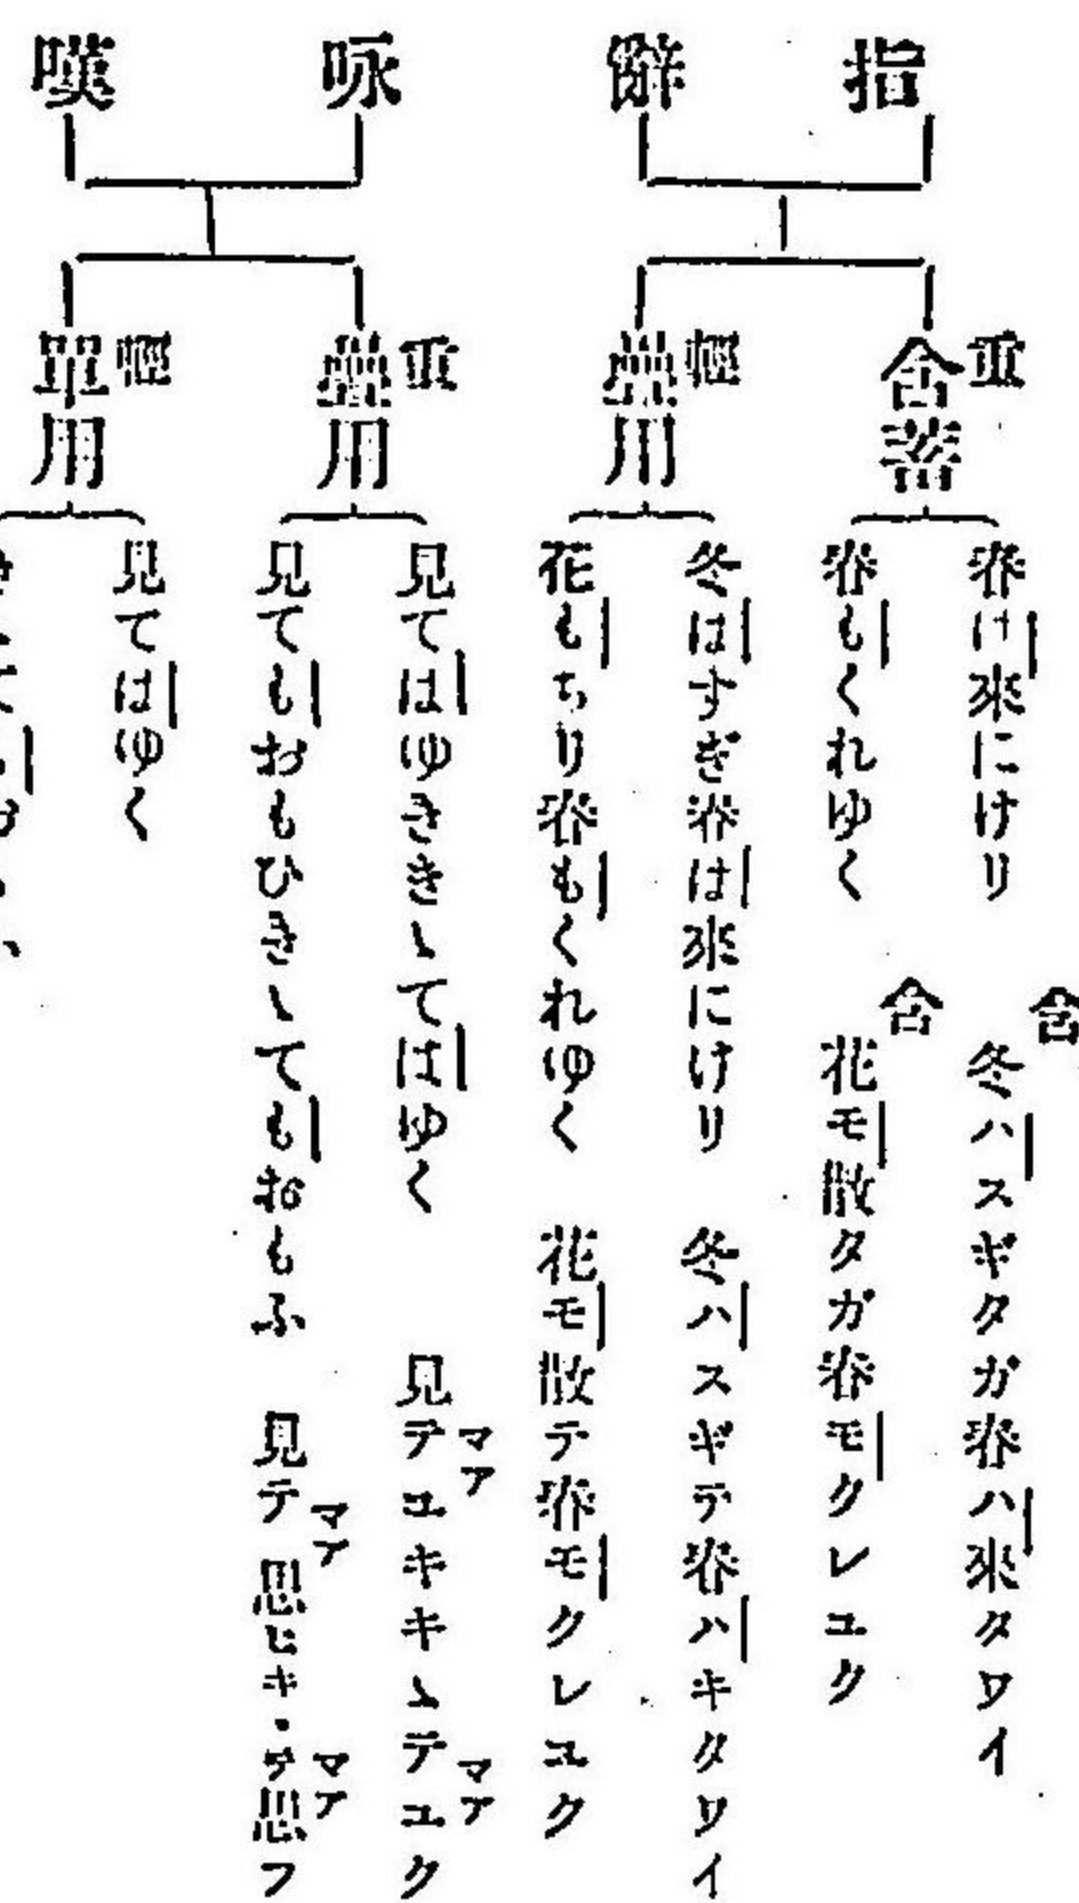 指辭
重
含蓄
春は來にけり
含
冬ハスギタガ春ハ來タワイ
春もくれゆく
含
花モ散タガ春モクレユク
輕
疊用
冬はすぎ春は來にけり
冬ハスギテ春ハキタワイ
花もちり春もくれゆく
花モ散テ春モクレユク
咏嘆
重
疊用
見てはゆききゝてはゆく
見テマアユキキゝテマアユク
見てもおもひきゝてもおもふ
見テマア思ヒキゝテマア思フ
輕
單用
見てはゆく